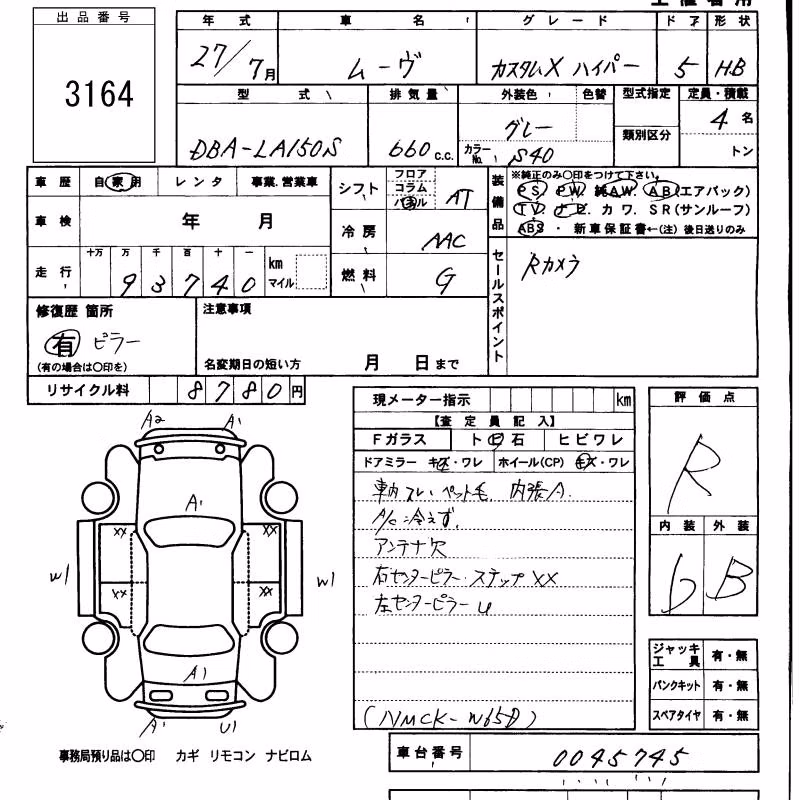 出品番号
3164
年式 車名 グレード ドア 形状
27/7月 ムーヴ カスタムX ハイパー 5 HB
型式 排気量 外装色 色替 型式指定 定員・積載
DBA-LA150S 660 c.c. グレー 類別区分 4名
カラーNo. S40 トン
車歴 自家用 レンタ 事業.営業車
車検 年 月
走行 十万 万 千 百 十 一 km マイル
93740
シフト フロア コラム パネル AT
冷房 AAC
燃料 G
装備品
※純正のみ○印をつけて下さい。
PS PW 純AW. AB(エアバック)
TV. ナビ. カワ. SR(サンルーフ)
ABS ・ 新車保証書←(注) 後日送りのみ
セールスポイント
Rカメラ
修復歴 箇所
有 ピラー
(有の場合は○印を)
注意事項
名変期日の短い方 月 日まで
リサイクル料 8780円
A2 A1
A1
XX XX
XX XX
W1 W1
A1
A1 U1
事務局預り品は○印 カギ リモコン ナビロム
現メーター指示 km
【査定員記入】
Fガラス ト目石 ヒビワレ
ドアミラー キズ・ワレ ホイール(CP) キズ・ワレ
車内スレ、ペット毛、内張A
A/C冷えず、
アンテナ欠
右センターピラー・ステップXX
左センターピラーU
評価点
R
内装 外装
B
ジャッキ工具 有・無
パンクキット 有・無
スペアタイヤ 有・無
車台番号 0045745